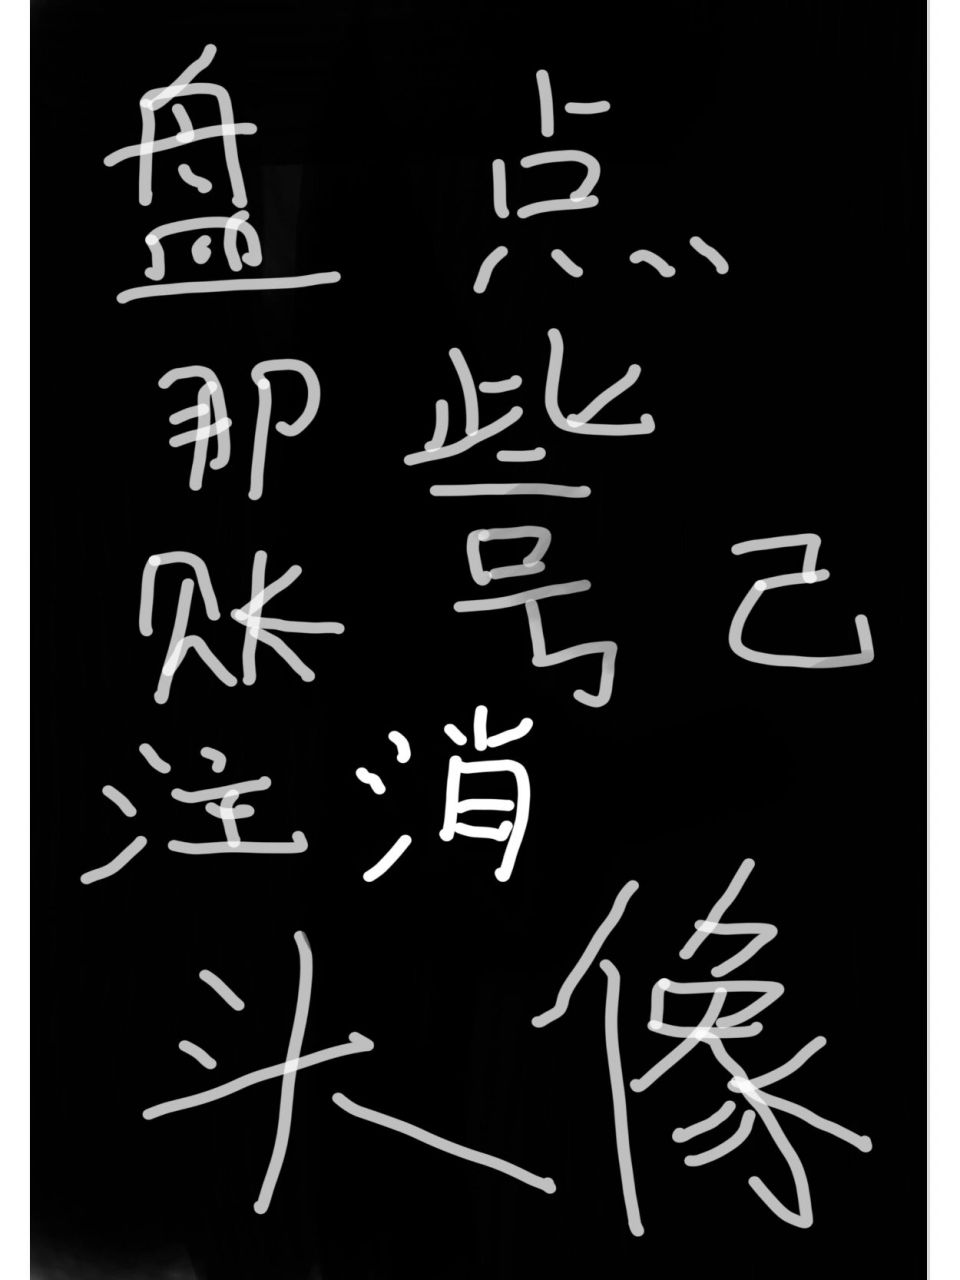 盘点
那些
账号己
注消
头像